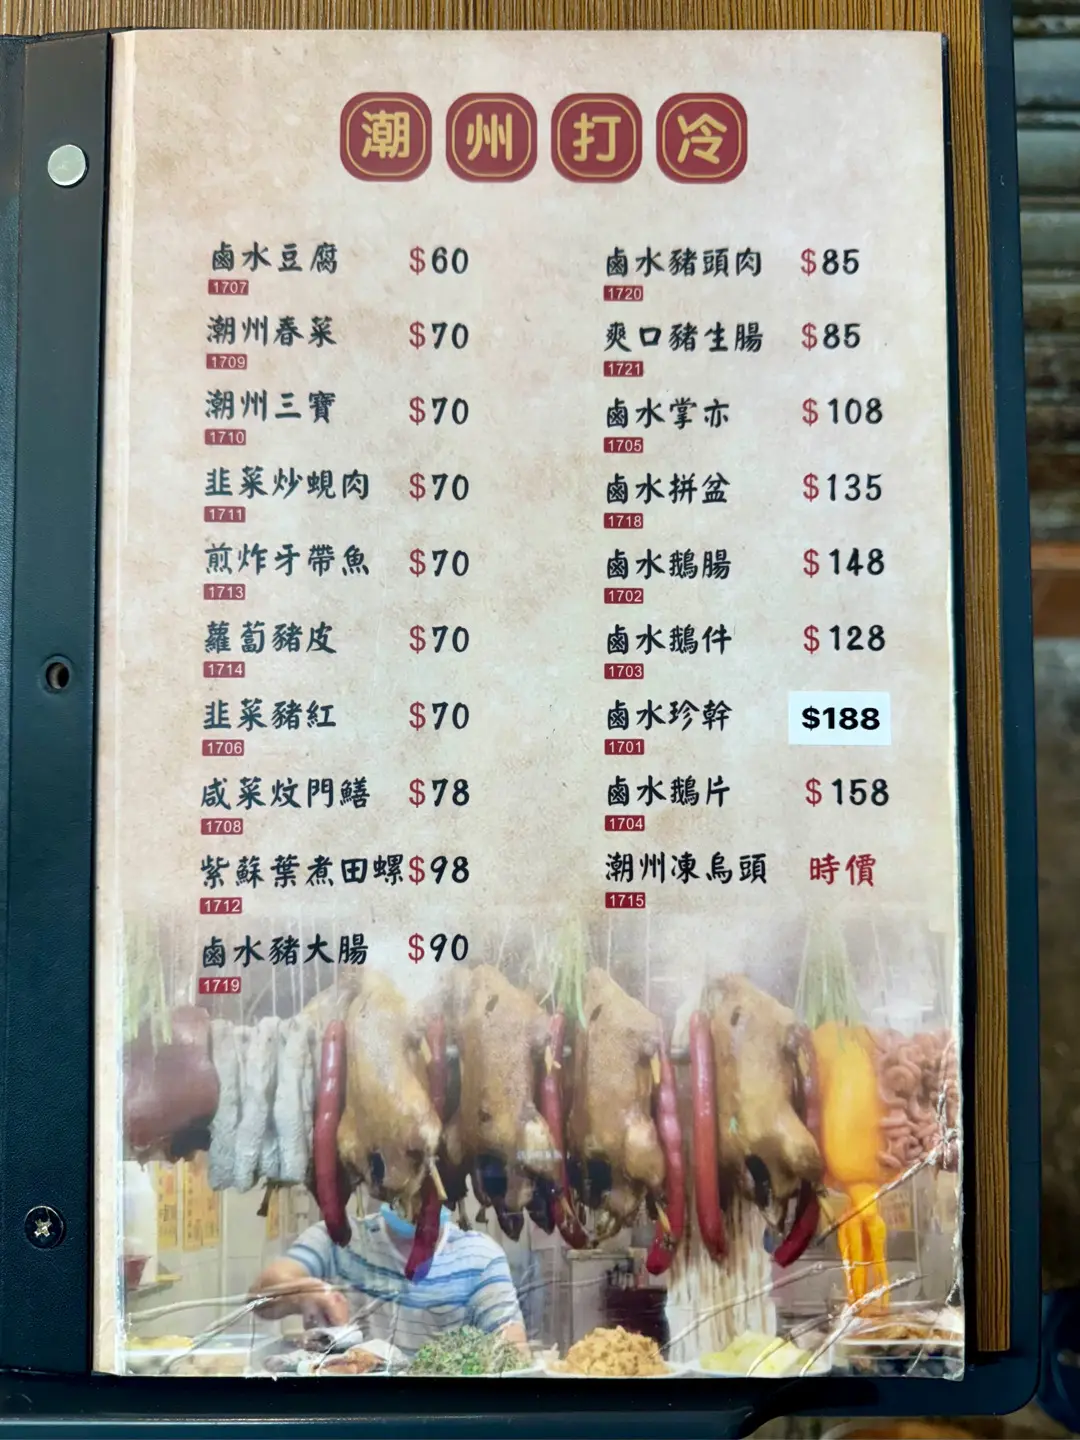 潮州打冷
鹵水豆腐 $60
1707
潮州春菜 $70
1709
潮州三寶 $70
1710
韭菜炒蜆肉 $70
1711
煎炸牙帶魚 $70
1713
蘿蔔豬皮 $70
1714
韭菜豬紅 $70
1706
咸菜炆門鱔 $78
1708
紫蘇葉煮田螺 $98
1712
鹵水豬大腸 $90
1719
鹵水豬頭肉 $85
1720
爽口豬生腸 $85
1721
鹵水掌亦 $108
1705
鹵水拼盆 $135
1718
鹵水鵝腸 $148
1702
鹵水鵝件 $128
1703
鹵水珍幹 $188
1701
鹵水鵝片 $158
1704
潮州凍烏頭 時價
1715